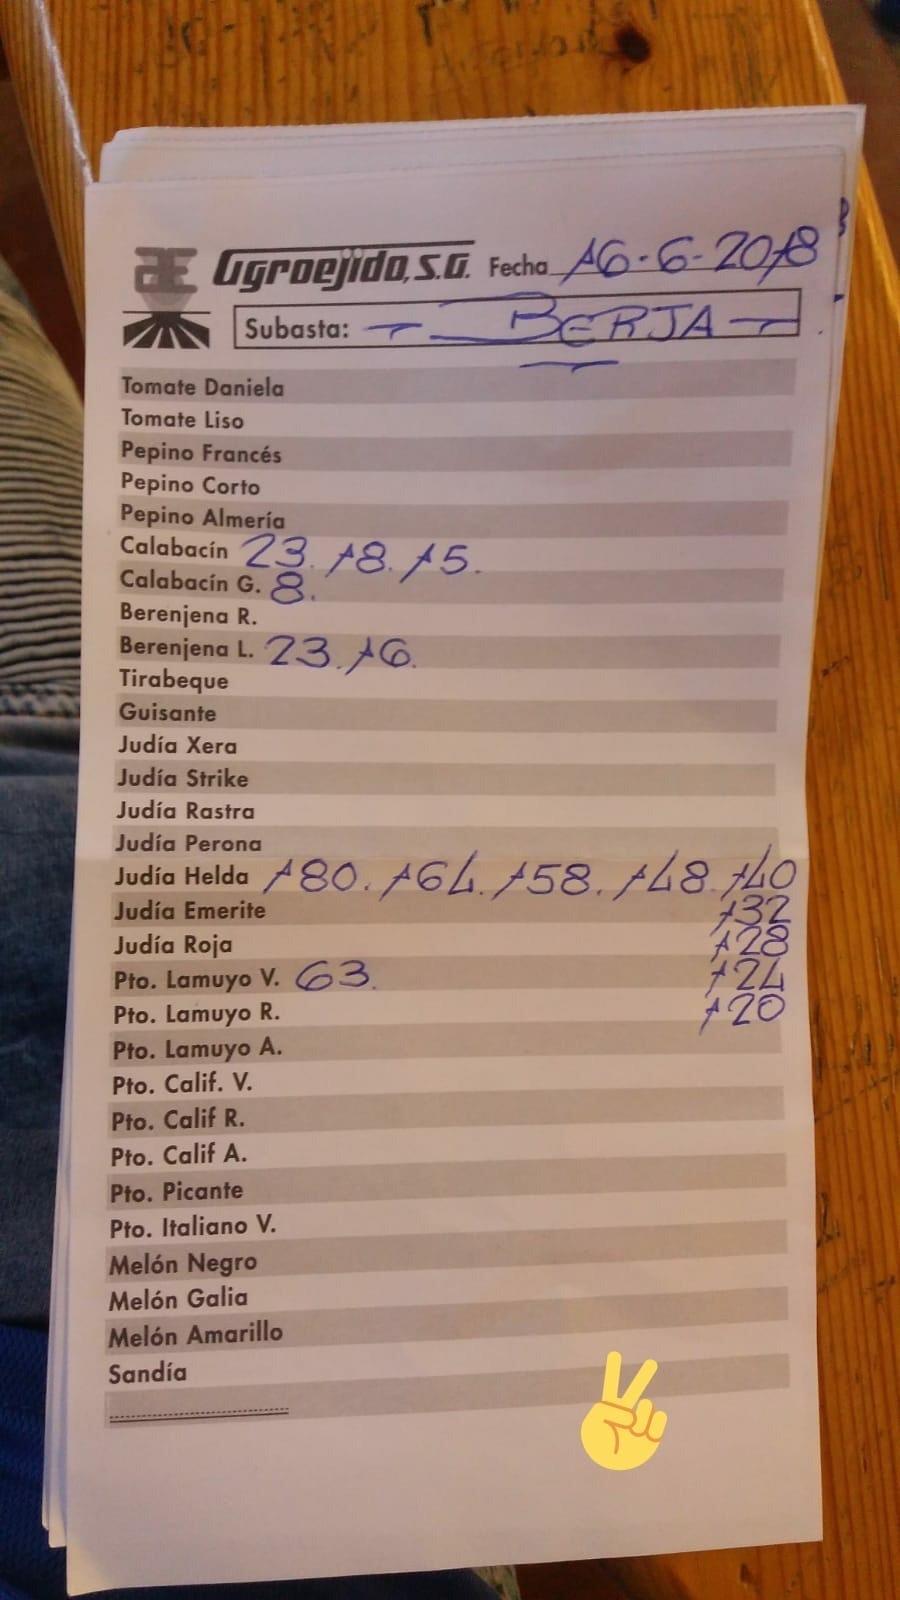 Agroejido, S.A. Fecha 16-6-2018
Subasta: - BERJA -
Tomate Daniela
Tomate Liso
Pepino Francés
Pepino Corto
Pepino Almería
Calabacín 23. 18. 15.
Calabacín G. 8.
Berenjena R.
Berenjena L. 23. 16.
Tirabeque
Guisante
Judía Xera
Judía Strike
Judía Rastra
Judía Perona
Judía Helda 180. 164. 158. 148. 140
Judía Emerite 132
Judía Roja 128
Pto. Lamuyo V. 63. 124
Pto. Lamuyo R. 120
Pto. Lamuyo A.
Pto. Calif. V.
Pto. Calif R.
Pto. Calif A.
Pto. Picante
Pto. Italiano V.
Melón Negro
Melón Galia
Melón Amarillo
Sandía